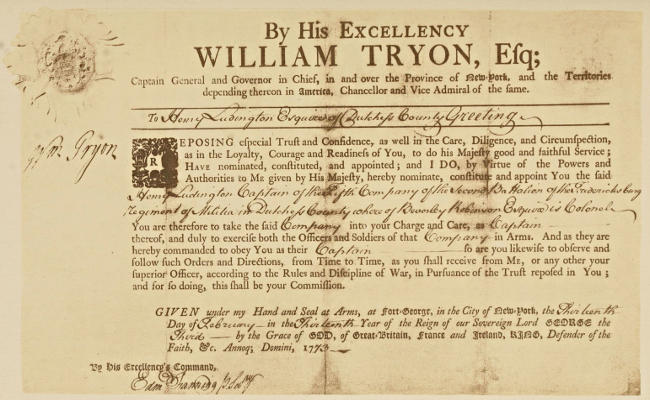 By His EXCELLENCY
WILLIAM TRYON, Eſq;
Captain General and Governor in Chief, in and over the Province of New-York, and the Territories
depending thereon in America, Chancellor and Vice Admiral of the same.
To Henry Ludington Esquire of Dutchess County Greeting
Wm Tryon
REPOSING especial Trust and Confidence, as well in the Care, Diligence, and Circumspection,
as in the Loyalty, Courage and Readiness of You, to do his Majesty good and faithful Service;
HAVE nominated, constituted, and appointed; and I DO, by Virtue of the Powers and
Authorities to ME given by His Majesty, hereby nominate, constitute and appoint You the said
Henry Ludington Captain of the Fifth Company of the Second Battalion of the Fredericksburg
Regiment of Militia in Dutchess County whereof Beverly Robinson Esquire is Colonel
You are therefore to take the said Company into your Charge and Care, as Captain
thereof, and duly to exercise both the Officers and Soldiers of that Company in Arms. And as they
are hereby commanded to obey You as their Captain so are you likewise to observe and
follow such Orders and Directions, from Time to Time, as you shall receive from ME, or any other your
superior Officer, according to the Rules and Discipline of War, in Pursuance of the Trust reposed in You;
and for so doing, this shall be your Commission.
GIVEN under my Hand and Seal at Arms, at Fort-George, in the City of New-York, the Thirteenth
Day of February in the Thirteenth Year of the Reign of our Sovereign Lord GEORGE the
Third by the Grace of GOD, of Great-Britain, France and Ireland, KING, Defender of the
Faith, &c. Annoq; Domini, 1773
By His Excellency's Command,